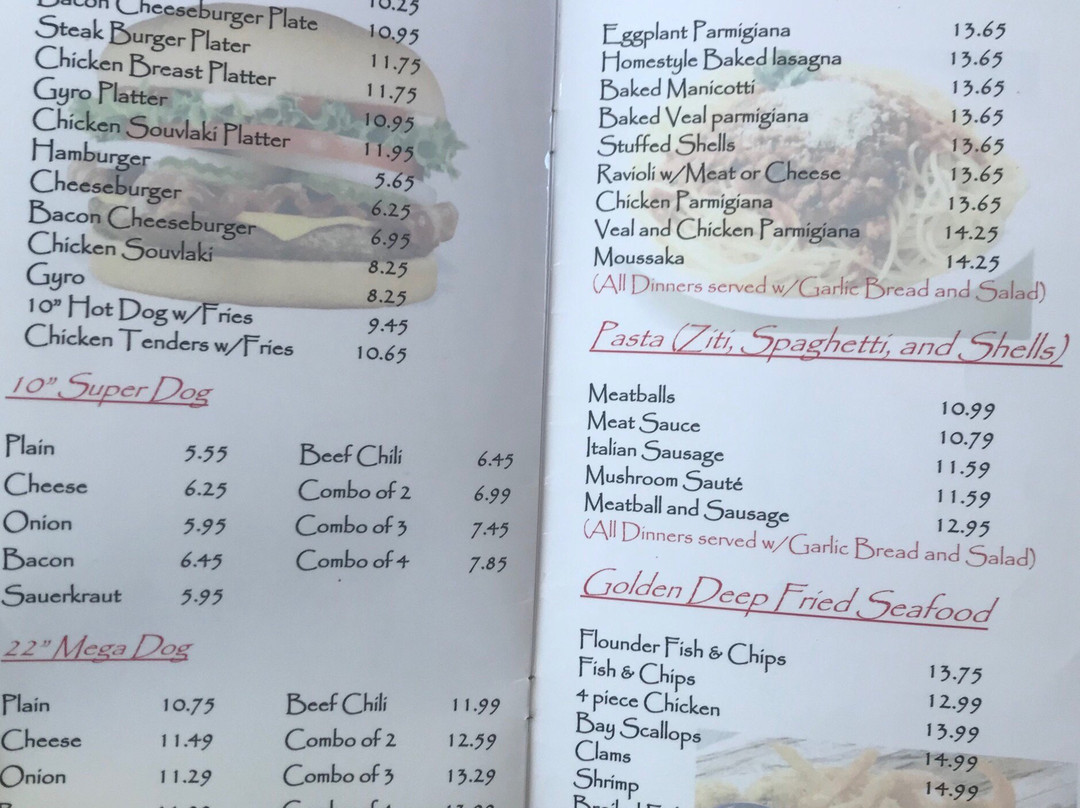 10.25
Bacon Cheeseburger Plate 10.95
Steak Burger Plater 11.75
Chicken Breast Platter 11.75
Gyro Platter 10.95
Chicken Souvlaki Platter 11.95
Hamburger 5.65
Cheeseburger 6.25
Bacon Cheeseburger 6.95
Chicken Souvlaki 8.25
Gyro 8.25
10" Hot Dog w/Fries 9.45
Chicken Tenders w/Fries 10.65
10" Super Dog
Plain 5.55 Beef Chili 6.45
Cheese 6.25 Combo of 2 6.99
Onion 5.95 Combo of 3 7.45
Bacon 6.45 Combo of 4 7.85
Sauerkraut 5.95
22" Mega Dog
Plain 10.75 Beef Chili 11.99
Cheese 11.49 Combo of 2 12.59
Onion 11.29 Combo of 3 13.29
Eggplant Parmigiana 13.65
Homestyle Baked lasagna 13.65
Baked Manicotti 13.65
Baked Veal parmigiana 13.65
Stuffed Shells 13.65
Ravioli w/Meat or Cheese 13.65
Chicken Parmigiana 13.65
Veal and Chicken Parmigiana 14.25
Moussaka 14.25
(All Dinners served w/Garlic Bread and Salad)
Pasta (Ziti, Spaghetti, and Shells)
Meatballs 10.99
Meat Sauce 10.79
Italian Sausage 11.59
Mushroom Sauté 11.59
Meatball and Sausage 12.95
(All Dinners served w/Garlic Bread and Salad)
Golden Deep Fried Seafood
Flounder Fish & Chips 13.75
Fish & Chips 12.99
4 piece Chicken 13.99
Bay Scallops 14.99
Clams 14.99
Shrimp